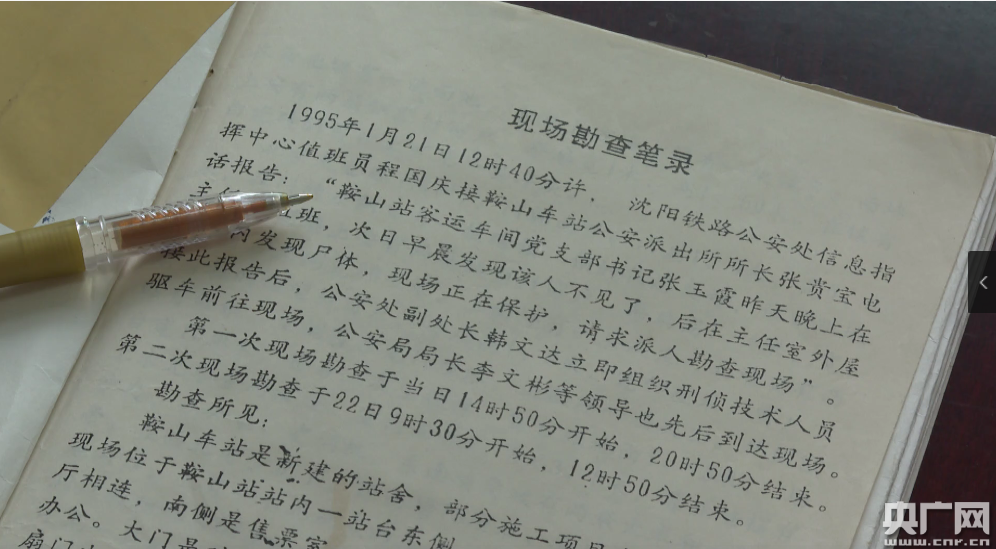 现场勘查笔录
1995年1月21日12时40分许，沈阳铁路公安处信息指
挥中心值班员程国庆接鞍山车站公安派出所所长张贵宝电
话报告：“鞍山站客运车间党支部书记张玉霞昨天晚上在
主任 值班，次日早晨发现该人不见了，后在主任室外屋
内发现尸体，现场正在保护，请求派人勘查现场”。
接此报告后，公安处副处长韩文达立即组织刑侦技术人员
驱车前往现场，公安局局长李文彬等领导也先后到达现场。
第一次现场勘查于当日14时50分开始，20时50分结束。
第二次现场勘查于22日9时30分开始，12时50分结束。
勘查所见：
鞍山车站是新建的站舍，部分施工项目
现场位于鞍山站站内一站台东侧
厅相连，南侧是售票室
办公。大门是
扇门
央广网
www.cnr.cn